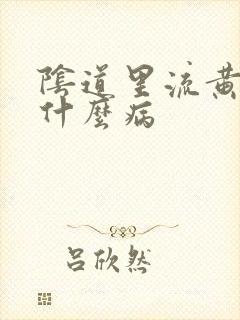 陰道里流黃
什麼病
呂欣然